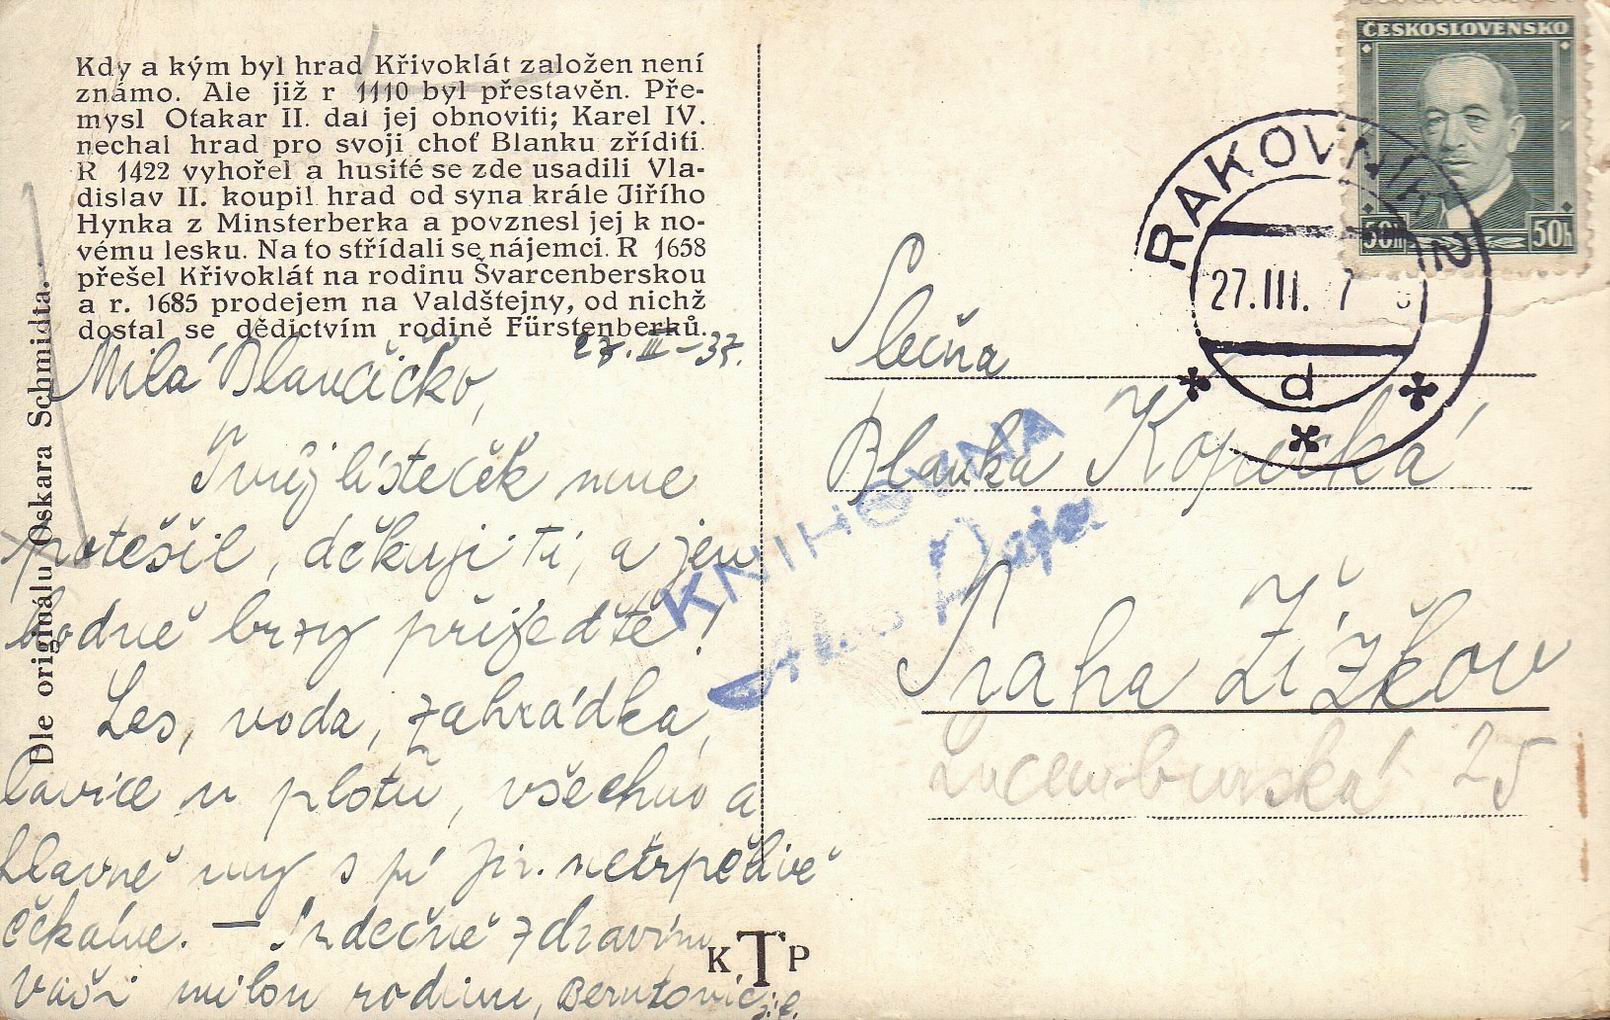 Kdy a kým byl hrad Křivoklát založen není
známo. Ale již r 1110 byl přestavěn. Pře-
mysl Otakar II. dal jej obnoviti; Karel IV.
nechal hrad pro svoji choť Blanku zříditi.
R 1422 vyhořel a husité se zde usadili Vla-
dislav II. koupil hrad od syna krále Jiřího
Hynka z Minsterberka a povznesl jej k no-
vému lesku. Na to střídali se nájemci. R 1658
přešel Křivoklát na rodinu Švarcenberskou
a r. 1685 prodejem na Valdštejny, od nichž
dostal se dědictvím rodině Fürstenberků.
Dle originálu Oskara Schmidta.
27. III - 37.
Milá Blančičko,
Tvůj lísteček mne
potěšil, děkuji Ti, a jen
hodně brzy přijeďte!
Les, voda, zahrádka,
lavice u plotu, všechno a
hlavně my s netrpělivě
čekáme. — Srdečně zdravím
Vaši milou rodinu,
K T P
ČESKOSLOVENSKO
50h 50h
RAKOVNÍK 2
27.III. 7
d
KNIHOVNA
Slečna
Blanka Kopecká
Praha Žižkov
Lucemburská 25